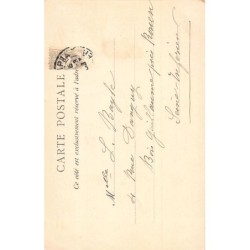 CARTE POSTALE
Ce côté est exclusivement réservé à l'adresse
Melle L.
de Rue
Bois Guillaume près Rouen
Seine Inférieure